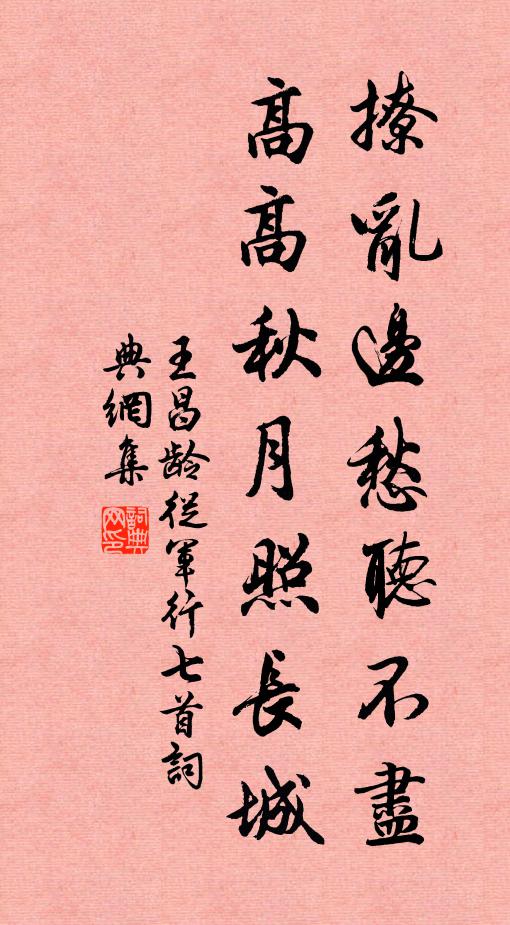 撩亂邊愁聽不盡
高高秋月照長城
王昌齡從軍行七首詞
典網集
詞典網印